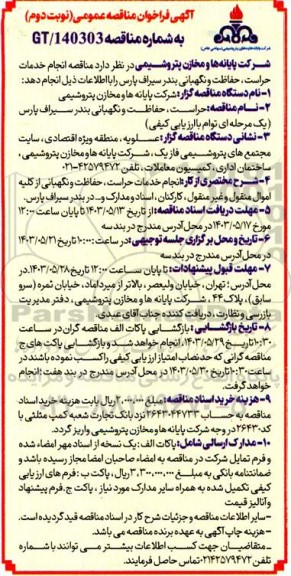 آگهی فراخوان مناقصه عمومی (نوبت دوم)
به شماره مناقصه GT/140303
شرکت پایانه‌ها و مخازن پتروشیمی در نظر دارد مناقصه انجام خدمات
حراست، حفاظت و نگهبانی بندر سیراف پارس را با اطلاعات ذیل انجام دهد:
۱- نام دستگاه مناقصه گزار: شرکت پایانه‌ها و مخازن پتروشیمی
۲- نام مناقصه: حراست، حفاظت و نگهبانی بندر سیراف پارس
(یک مرحله ای توام با ارزیابی کیفی)
۳- نشانی دستگاه مناقصه گزار: عسلویه، منطقه ویژه اقتصادی، سایت
مجتمع های پتروشیمی فاز یک، شرکت پایانه ها و مخازن پتروشیمی،
ساختمان اداری، کمیسیون معاملات، تلفن ۴۲۵۷۹۴۷۲-۰۲۱
۴- شرح مختصری از کار: انجام خدمات حراست، حفاظت و نگهبانی از کلیه
اموال منقول و غیر منقول، کارکنان، اسناد و مدارک و... در بندر سیراف پارس.
۵- مهلت دریافت اسناد مناقصه: از تاریخ ۱۴۰۳/۰۵/۱۳ تا پایان ساعت ۱۲:۰۰
مورخ ۱۴۰۳/۰۵/۱۷ در محل آدرس مندرج در بند سه
۶- تاریخ و محل برگزاری جلسه توجیهی: در ساعت ۱۰:۰۰ تاریخ ۱۴۰۳/۰۵/۲۱
در محل آدرس مندرج در بند سه
۷- مهلت قبول پیشنهادات: تا پایان ساعت ۱۲:۰۰ تاریخ ۱۴۰۳/۰۵/۲۸ در
محل آدرس: تهران، خیابان ولیعصر، بالاتر از میرداماد، خیابان ثمره (سرو
سابق)، پلاک ۴۴، شرکت پایانه ها و مخازن پتروشیمی، دفتر مدیریت
بازرسی و نظارت، دریافت کننده جناب آقای عبدی
۸- تاریخ بازگشایی: بازگشایی پاکات الف مناقصه گران در ساعت
۱۰:۳۰ تاریخ ۱۴۰۳/۰۵/۲۹، انجام خواهد شد و بازگشایی پاکت های ج
مناقصه گرانی که حد نصاب امتیاز ارزیابی کیفی را کسب نموده باشند در
ساعت ۱۰:۳۰ تاریخ ۱۴۰۳/۰۵/۳۰ در محل آدرس مندرج در بند هفت، انجام
خواهد گرفت.
۹- هزینه خرید اسناد مناقصه: مبلغ ۲,۰۰۰,۰۰۰ ریال بابت هزینه خرید اسناد
مناقصه به حساب ۲۶۴۳۰۴۴۷۳۳ نزد بانک تجارت شعبه کمپ مثلثی با
کد ۲۶۴۳۰ در وجه شرکت پایانه ها و مخازن پتروشیمی واریز گردد.
۱۰- مدارک ارسالی شامل: پاکات الف: یک نسخه از اسناد مهر امضاء شده
و فرم تمایل شرکت در مناقصه به امضاء صاحبان امضا مجاز رسیده باشد و
ضمانتنامه بانکی به مبلغ ۳,۳۰۰,۰۰۰,۰۰۰ ریال، پاکت ب: فرم های ارزیابی
کیفی تکمیل شده به همراه سایر مدارک مورد نیاز، پاکت ج: فرم پیشنهاد
و آنالیز قیمت
- سایر اطلاعات مناقصه و جزئیات شرح کار در اسناد مناقصه قید گردیده است.
- هزینه چاپ آگهی به عهده برنده مناقصه می باشد.
- متقاضیان جهت کسب اطلاعات بیشتر می توانند با شماره
تلفن ۰۲۱۴۲۵۷۹۴۷۲ تماس حاصل فرمایند.